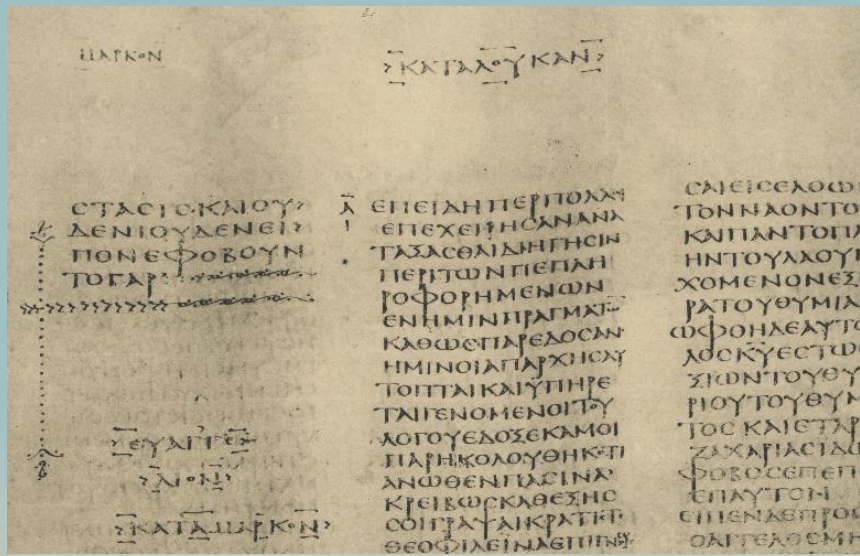 ΜΑΡΚΟΝ
ΚΑΤΑ ΛΟΥΚΑΝ
ϹΤΑϹΙϹ·ΚΑΙΟΥ
ΔΕΝΙΟΥΔΕΝΕΙ
ΠΟΝΕΦΟΒΟΥΝ
ΤΟΓΑΡ
ΕΥΑΓΓΕ
ΛΙΟΝ
ΚΑΤΑΜΑΡΚΟΝ
Α
ΕΠΕΙΔΗΠΕΡΠΟΛΛΟΙ
ΕΠΕΧΕΙΡΗϹΑΝΑΝΑ
ΤΑΞΑϹΘΑΙΔΙΗΓΗϹΙΝ
ΠΕΡΙΤΩΝΠΕΠΛΗ
ΡΟΦΟΡΗΜΕΝΩΝ
ΕΝΗΜΙΝΠΡΑΓΜΑΤΩ
ΚΑΘΩϹΠΑΡΕΔΟϹΑΝ
ΗΜΙΝΟΙΑΠΑΡΧΗϹΑΥ
ΤΟΠΤΑΙΚΑΙΫΠΗΡΕ
ΤΑΙΓΕΝΟΜΕΝΟΙΤΟΥ
ΛΟΓΟΥΕΔΟΞΕΚΑΜΟΙ
ΠΑΡΗΚΟΛΟΥΘΗΚΟΤΙ
ΑΝΩΘΕΝΠΑϹΙΝΑ
ΚΡΕΙΒΩϹΚΑΘΕΞΗϹ
ϹΟΙΓΡΑΨΑΙΚΡΑΤΙϹΤΕ
ΘΕΟΦΙΛΕΙΝΑΕΠΙΓΝΩ
ϹΑΙΕΙϹΕΛΘΩ
ΤΟΝΝΑΟΝΤΟ
ΚΑΙΠΑΝΤΟΠΛ
ΗΝΤΟΥΛΑΟΥ
ΧΟΜΕΝΟΝΕΞ
ΡΑΤΟΥΘΥΜΙΑ
ΩΦΘΗΔΕΑΥΤ
ΛΟϹΚΥΕϹΤΩ
ΞΙΩΝΤΟΥΘΥ
ΡΙΟΥΤΟΥΘΥΜ
ΤΟϹΚΑΙΕΤΑΡ
ΖΑΧΑΡΙΑϹΙΔΩ
ΦΟΒΟϹΕΠΕΠ
ΕΠΑΥΤΟΝ
ΕΙΠΕΝΔΕΠΡΟϹ
ΟΑΓΓΕΛΟϹΜΗ